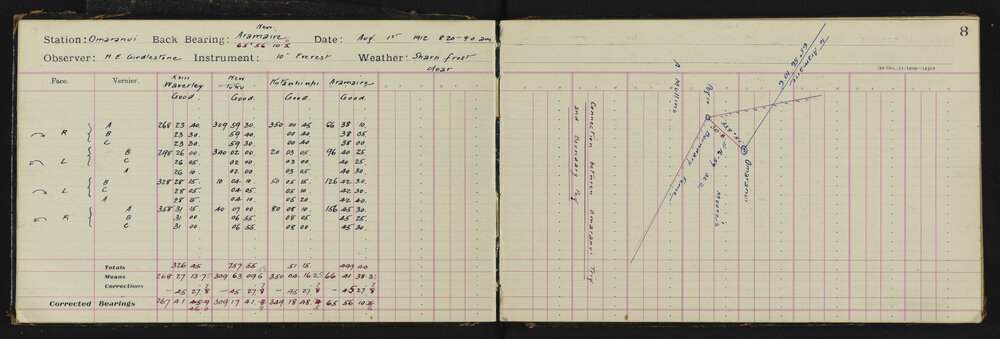 New
Station: Omaranui Back Bearing: Aramaire Date: Aug. 1st 1912 8.20-9.0 am
65° 56' 10.5
Observer: H. E. Girdlestone Instrument: 10" Everest Weather: Sharp frost
clear
Face. Vernier. XVIII Waverley New Tuhu Aramaire
Good Good. Good Good.
R A 268 23 40. 309 59 30. 350 00 45 66 38 10.
B 23 30. 59 40. 00 40. 38 05.
C 23 30. 59 30. 00 40. 38 00
L B 298 26 00. 340 02 00 20 03 05 96 40 25
C 26 05 02 00. 03 00. 40 25
A 26 10 02 00. 03 05. 40 30
L B 328 28 15. 10 04 10. 50 05 15. 126 42 30.
C 28 05. 04 05. 05 10. 42 30.
A 28 15. 04 10. 05 20. 42 40.
R A 358 31 15 40 07 00 80 08 10 156 45 30.
B 31 00 06 55. 08 05. 45 25.
C 31 00 06 55. 08 00. 45 30.
Totals 326 45 757 55 51 15. 499 40
Means 268 27 13.7 309 63 09.6 350 04 16.2 66 41 38.3
Corrections - 45 27.8 - 45 27.8 - 45 27.8 - 45 27.8
Corrected Bearings 267 41 309 17 41.8 349 18 48. 65 56 10.5
46.0
8
N Aramaire
65° 56'
A Mullins
Peg 10
Omaranui
Boundary Fence
Moore's
Connection between Omaranui Trig
and Boundary Peg